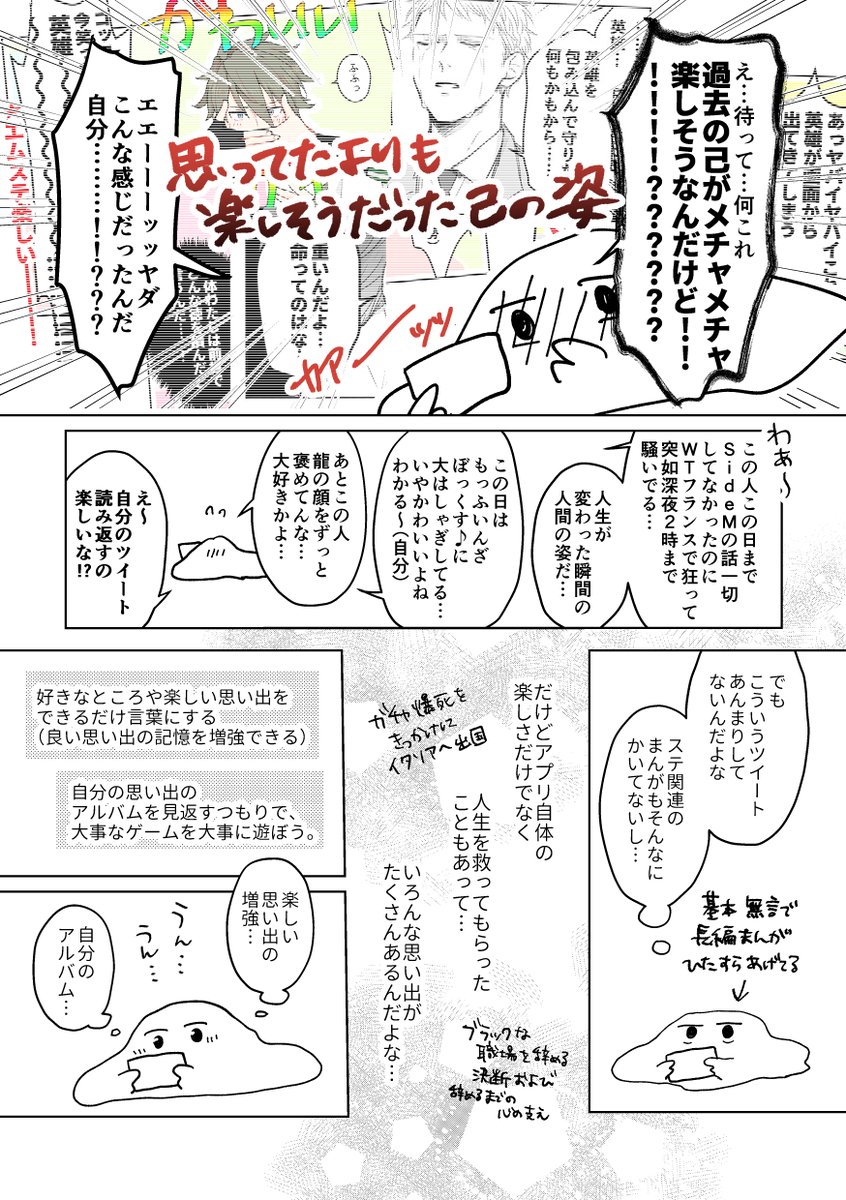 え…待って…何これ
過去の己がメチャメチャ
楽しそうなんだけど！！
！！！！！？？？？？？？
あっヤバイヤバイ
英雄が画面から
出てきてしまう
英雄を
包み込んで守り
何もかもから……
ふふっ
かわいい
思ってたよりも
楽しそうだった己の姿
エエーーーッッヤダ
こんな感じだったんだ
自分………！！？？？
重いんだよ…
命ってのはな
ガアーーッッ
わぁ〜
この人この日まで
SideMの話一切
してなかったのに
WTフランスで狂って
突如深夜2時まで
騒いでる…
人生が
変わった瞬間の
人間の姿だ…
この日は
もっふいんざ
ぼっくす♪に
大はしゃぎしてる…
いやかわいいよね
わかる〜（自分）
あとこの人
龍の顔をずっと
褒めてんな…
大好きかよ…
え〜
自分のツイート
読み返すの
楽しいな！？
でも
こういうツイート
あんまりして
ないんだよな
ステ関連の
まんがもそんなに
かいてないし…
基本無言で
長編まんが
ひたすらあげてる
だけどアプリ自体の
楽しさだけでなく
ガチャ爆死を
きっかけに
イタリアへ出国
人生を救ってもらった
こともあって…
いろんな思い出が
たくさんあるんだよな…
ブラックな
職場を辞める
決断および
辞めるまでの
心の支え
好きなところや楽しい思い出を
できるだけ言葉にする
（良い思い出の記憶を増強できる）
自分の思い出の
アルバムを見返すつもりで、
大事なゲームを大事に遊ぼう。
楽しい
思い出の
増強…
うん…
うん…
自分の
アルバム…